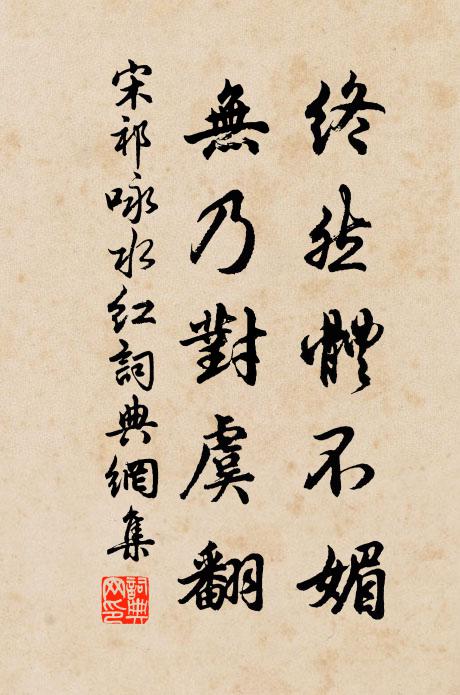 終然體不媚
無乃對虞翻
宋祁咏水紅詞典網集
詞典網印